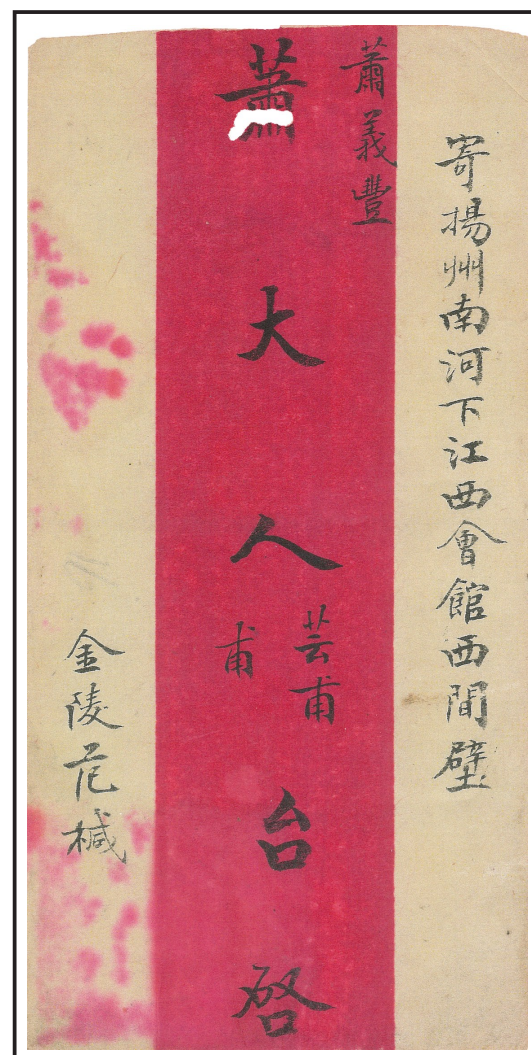 寄揚州南河下江西會館西間壁
蕭義豐
蕭大人台啓
芸甫
甫
金陵范椷